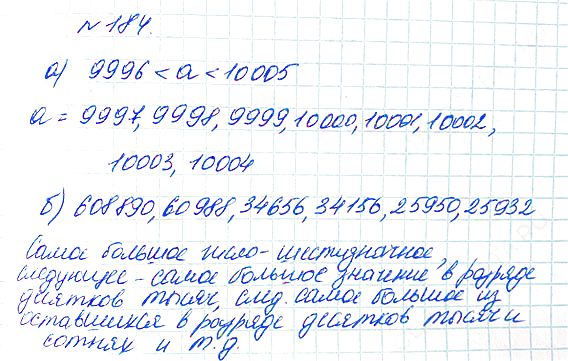 №184.
а) 9996 < а < 10005
а = 9997, 9998, 9999, 10000, 10001, 10002,
10003, 10004
б) 608890, 60988, 34656, 34156, 25950, 25932
Самое большое число - шестизначное,
следующее - самое большое значение в разряде
десятков тысяч, след. самое большое из
оставшихся в разряде десятков тысяч и
сотнях и т.д.